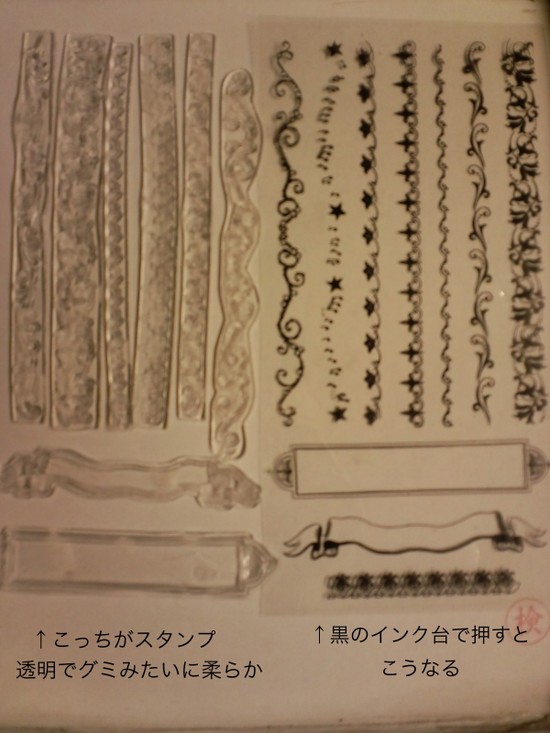 ↑こっちがスタンプ
透明でグミみたいに柔らか
↑黒のインク台で押すと
こうなる
検